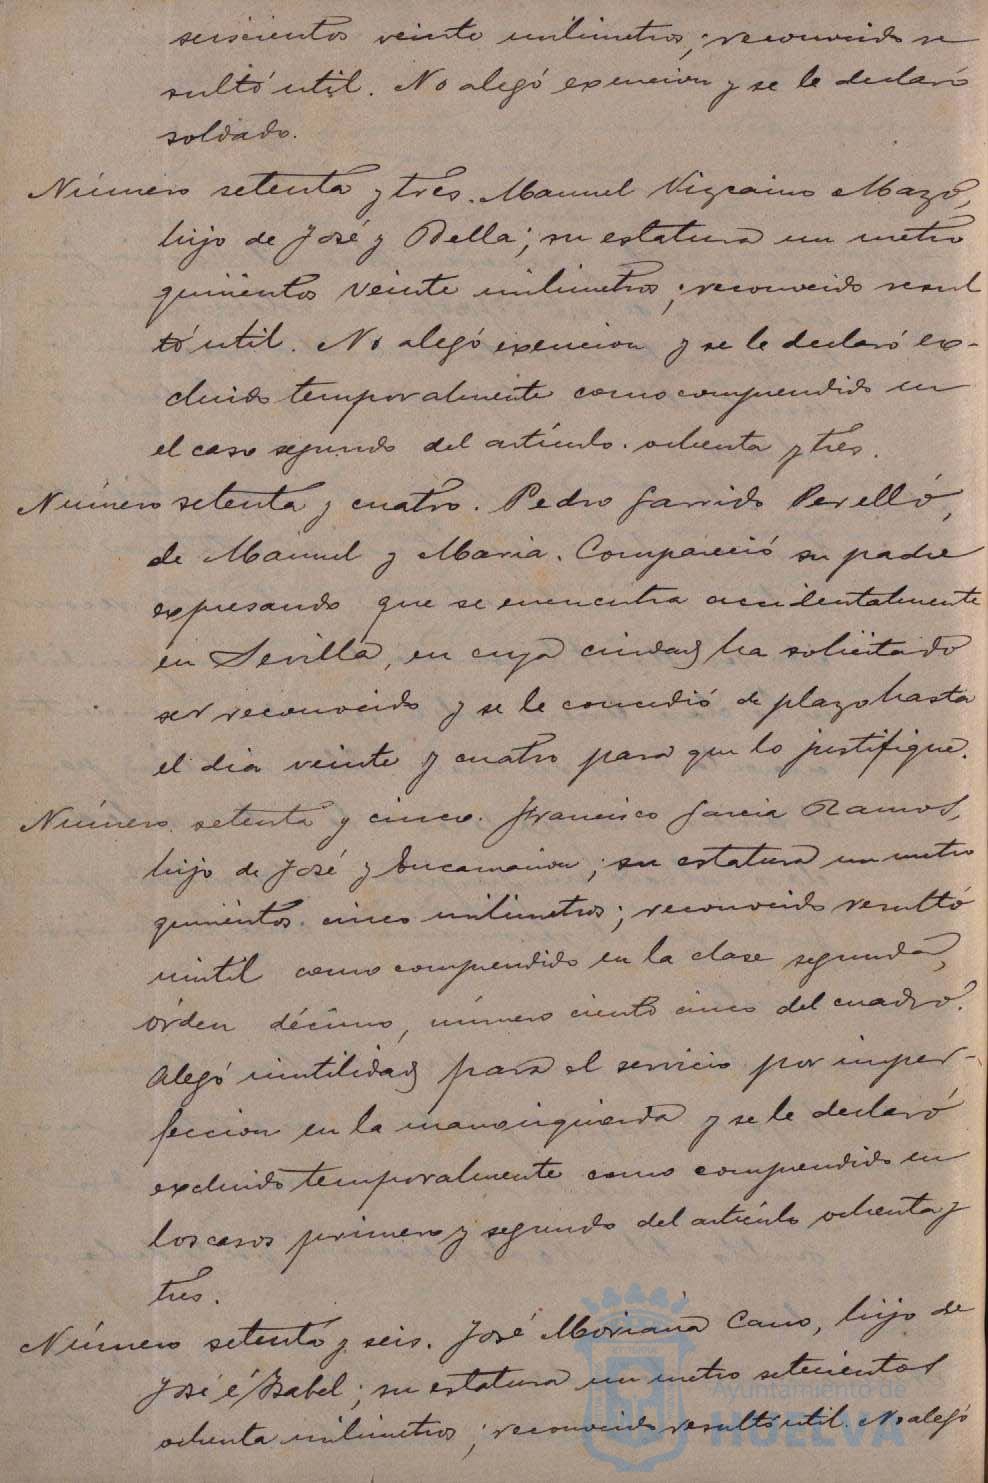 seiscientos veinte milimetros; reconocido re
sultó util. No alegó exencion y se le declaró
soldado.
Número setenta y tres. Manuel Vizcaino Mazo,
hijo de José y Bella; su estatura un metro
quinientos veinte milimetros; reconocido resul
tó util. No alegó exencion y se le declaró ex-
cluido temporalmente como comprendido en
el caso segundo del artículo ochenta y tres.
Número setenta y cuatro. Pedro Garrido Perelló,
de Manuel y Maria. Compareció su padre
expresando que se encuentra accidentalmente
en Sevilla, en cuya ciudad ha solicitado
ser reconocido y se le concedió de plazo hasta
el dia veinte y cuatro para que lo justifique.
Número setenta y cinco. Francisco Garcia Ramos,
hijo de José y Encarnacion; su estatura un metro
quinientos cinco milimetros; reconocido resultó
inútil como comprendido en la clase segunda,
órden décimo, número ciento cinco del cuadro.
Alegó inutilidad para el servicio por imper-
feccion en la mano izquierda y se le declaró
excluido temporalmente como comprendido en
los casos primero y segundo del artículo ochenta y
tres.
Número setenta y seis. José Moriana Cano, hijo de
José é Isabel; su estatura un metro setecientos
ochenta milimetros; reconocido resultó util. No alegó
Ayuntamiento de
HUELVA